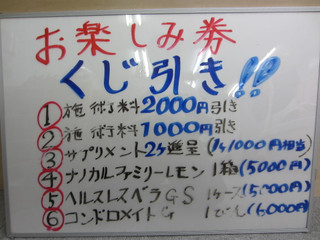 お楽しみ券
くじ引き!!
① 施術料2000円引き
② 施術料1000円引き
③ サプリメント2ヶ進呈(約1,000円相当)
④ ナノカルファミリーレモン 1箱(5000円)
⑤ ヘルスレスベラGS 1ケース(5000円)
⑥ コンドロメイトG 1びん(6000円)